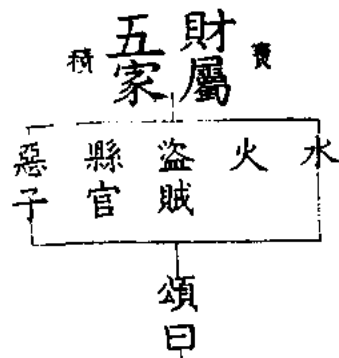 寶
財屬
五家
積
水
火
盗賊
縣官
惡子
頌曰